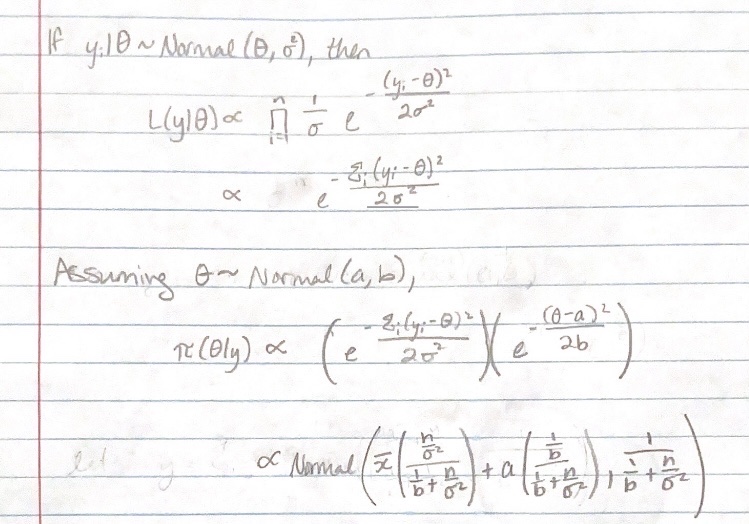 If yᵢ|θ ~ Normal(θ, σ²), then
L(y|θ) ∝ ∏ᵢ₌₁ⁿ 1/σ e^(-(yᵢ-θ)²/2σ²)
∝ e^(-Σᵢ(yᵢ-θ)²/2σ²)
Assuming θ ~ Normal(a,b),
π(θ|y) ∝ (e^(-Σᵢ(yᵢ-θ)²/2σ²))(e^(-(θ-a)²/2b))
let y ∝ Normal(x̄((n/σ²)/(1/b + n/σ²)) + a((1/b)/(1/b + n/σ²)), 1/(1/b + n/σ²))